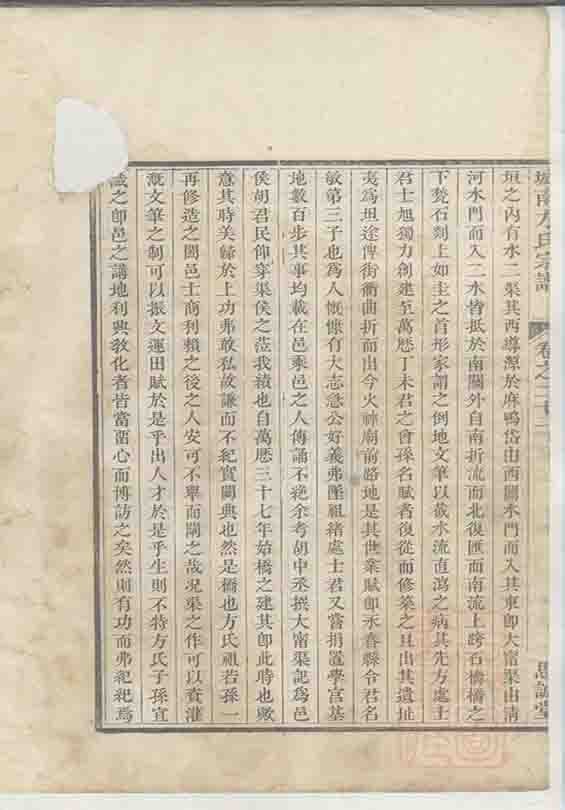 城南方氏宗譜
卷之二十二
思誠堂
垣之內有水二渠其西導源於麻鴨岱由西關水門而入其東卽大甯渠由清
河水門而入二水皆抵於南關外自南折流而北復匯而南流上跨石橋橋之
下甃石刻上如圭之首形家謂之倒地文筆以殺水流直瀉之病其先方處士
君士旭獨力創建至萬歷丁未君之會孫名賦者復從而修葺之且出其遺址
夷爲坦途俾街衢曲折而出今火神廟前路地是其世業賦卽永春縣令君名
敏第三子也爲人慨慷有大志急公好義弗墜祖緒處士君又嘗捐置學宮基
地數百步其事均載在邑乘邑之人傳誦不絶余考胡中丞撰大甯渠記爲邑
侯胡君民仰穿渠侯之蒞我績也自萬歷三十七年始橋之建其卽此時也歟
意其時美歸於上功弗敢私故謙而不紀實闕典也然是橋也方氏祖若孫一
再修造之闔邑士商利賴之後之人安可不舉而闡之故况渠之作可以資灌
漑文筆之制可以振文運田賦於是乎出人才於是乎生則不特方氏子孫宜
識之卽邑之講地利興敎化者皆當畱心而博訪之矣然則有功而弗紀紀焉